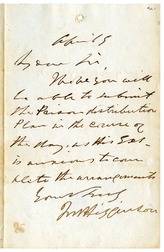 April 9
My dear Sir,
I hope you will
be able to submit
the Prison distribution
Plan in the course of
the day, as His Ex.
is anxious to com
plete the arrangements
Yours truly
J M Higginson